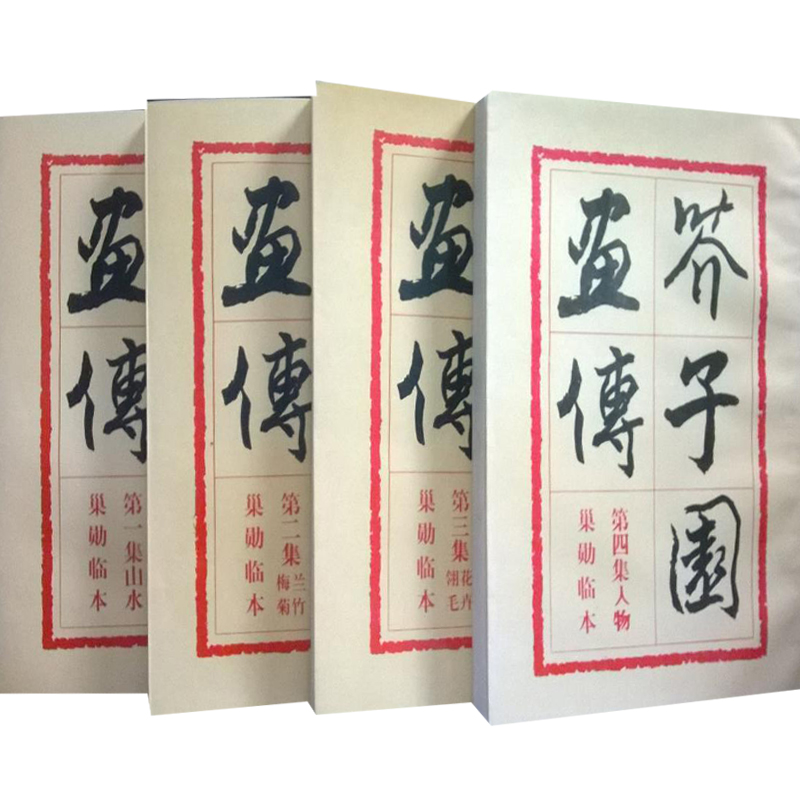 画傳
第一集山水
巢勋临本
画傳
第二集
兰竹
梅菊
巢勋临本
画傳
第三集
花卉
翎毛
巢勋临本
芥子園
画傳
第四集人物
巢勋临本